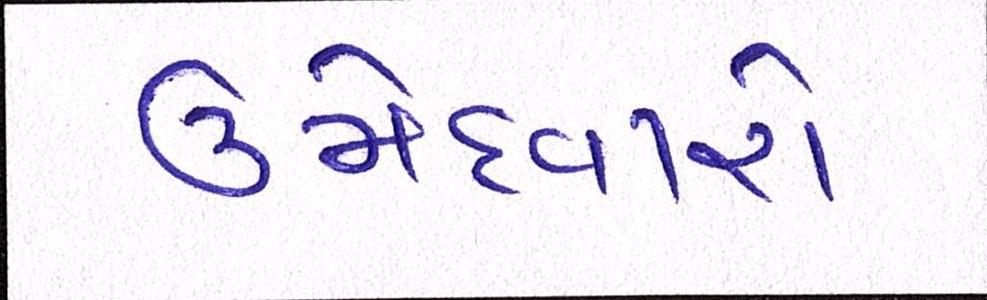 ઉમેદવારો